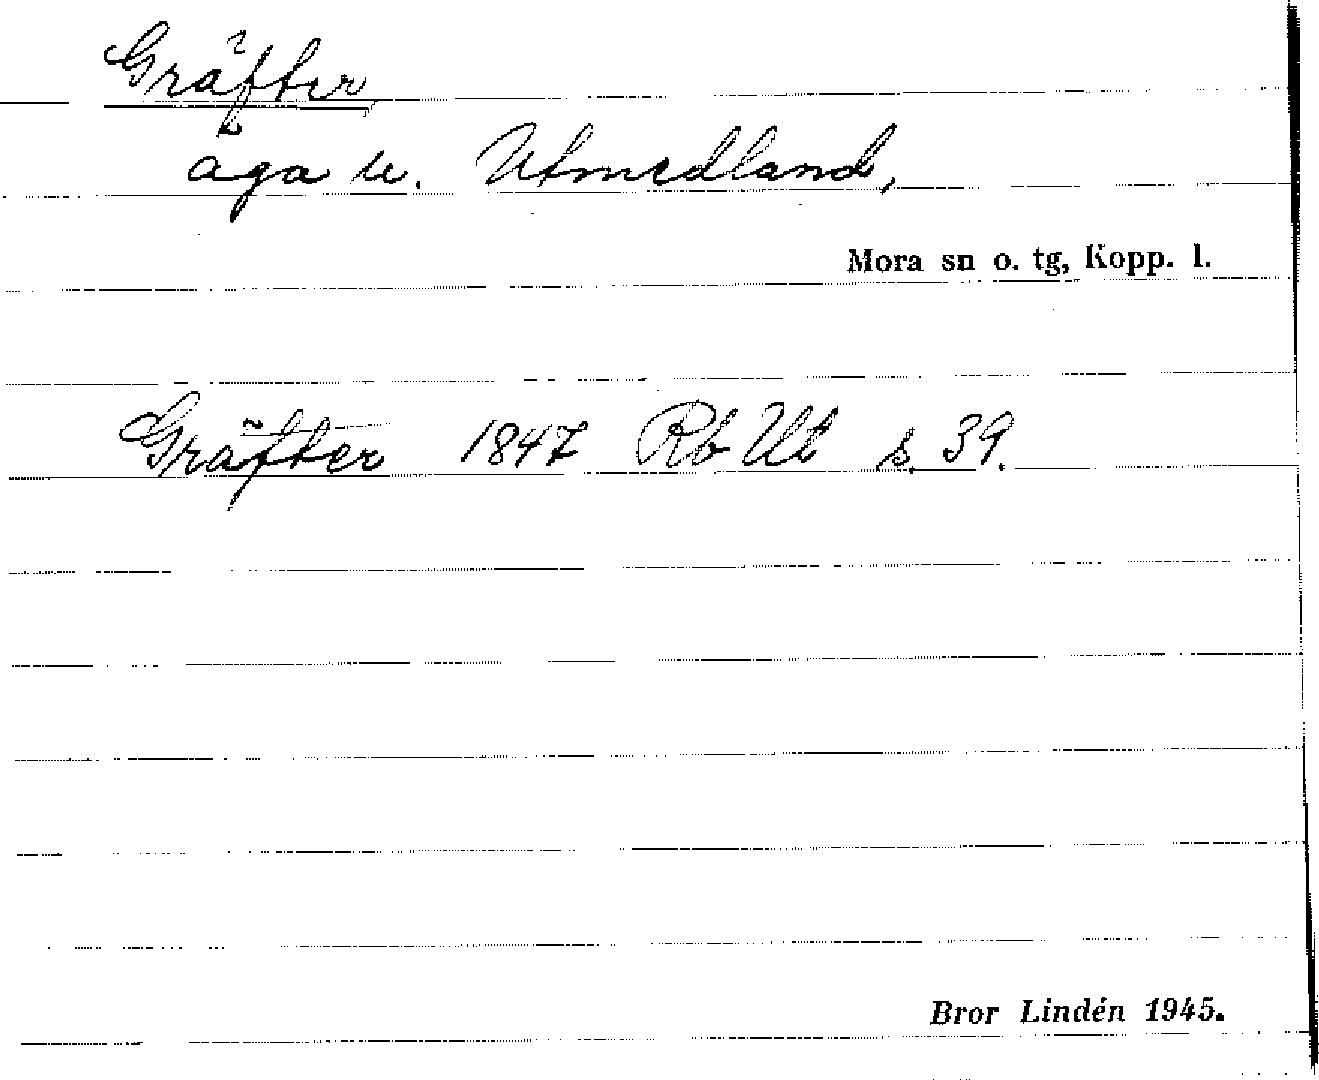 Gräfter
äga u. Utmedland,
Mora sn o. tg, Kopp. l.
Gräfter 1847 Rb Ut s. 39.
Bror Lindén 1945.